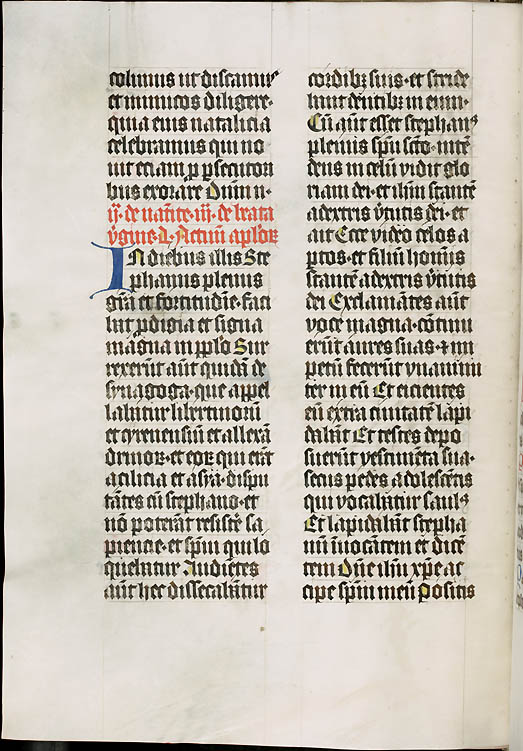 colimus ut discamus
et inimicos diligere·
quia eius natalicia
celebramus qui no
uit etiam p psecutori
bus exorare Dnm n·
ij· de natite· iij· de beata
vgine· L· Actuū aplor
In diebus illis Ste
phanus plenus
gra et fortitudie· faci
ebat pdigia et signa
magna in pplo Sur
rexerūt aut quidā de
synagoga· que appel
labatur libertinorū
et cyrenensiū et allexā
drinor· et eor qui erāt
a cilicia et asya· dispu
tātes cū stephano· et
nō poterāt resistē sa
pientie· et spui qui lo
quebatur Audietes
aut hec dissecabātur
cordibz suis· et stride
bant dētibz in eum·
Cū aut esset stephanꝰ
plenus spu scto· intē
dens in celū vidit glo
riam dei· et ihm stantē
a dextris vtutis dei· et
ait Ecce video celos a
ptos· et filiū hominis
stantē a dextris vtutis
dei Exclamātes aut
voce magna· cōtinu
erūt aures suas· et im
petū fecerūt vnanimi
ter in eū Et eicientes
eū extra ciuitatē lapi
dabāt Et testes depo
suerūt vestimēta sua·
secus pedes adolescētis
qui vocabatur saulꝰ
Et lapidabāt stepha
nū inuocātem et dicē
tem Dne ihu xpe ac
cipe spm meū Positis